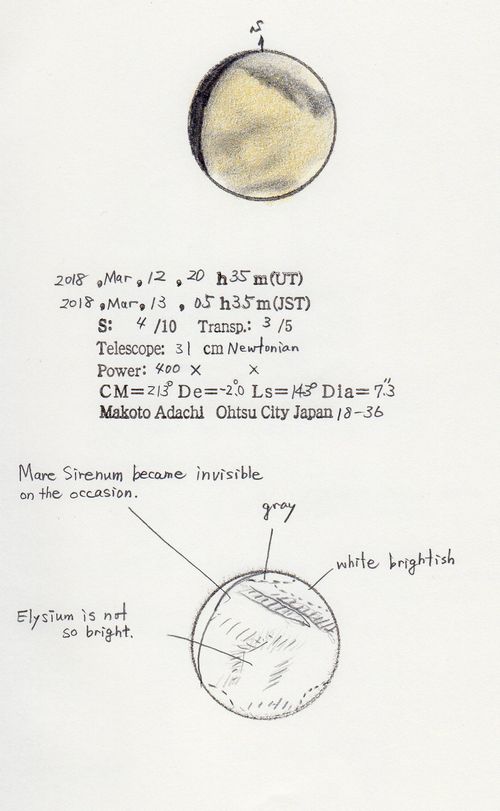 S
2018 , Mar , 12 , 20 h 35 m(UT)
2018 , Mar , 13 , 05 h 35 m(JST)
S: 4 /10 Transp.: 3 /5
Telescope: 31 cm Newtonian
Power: 400 × ×
CM= 213° De= -2.°0 Ls= 143° Dia= 7."3
Makoto Adachi Ohtsu City Japan 18-36
Mare Sirenum became invisible
on the occasion.
gray
white brightish
Elysium is not
so bright.